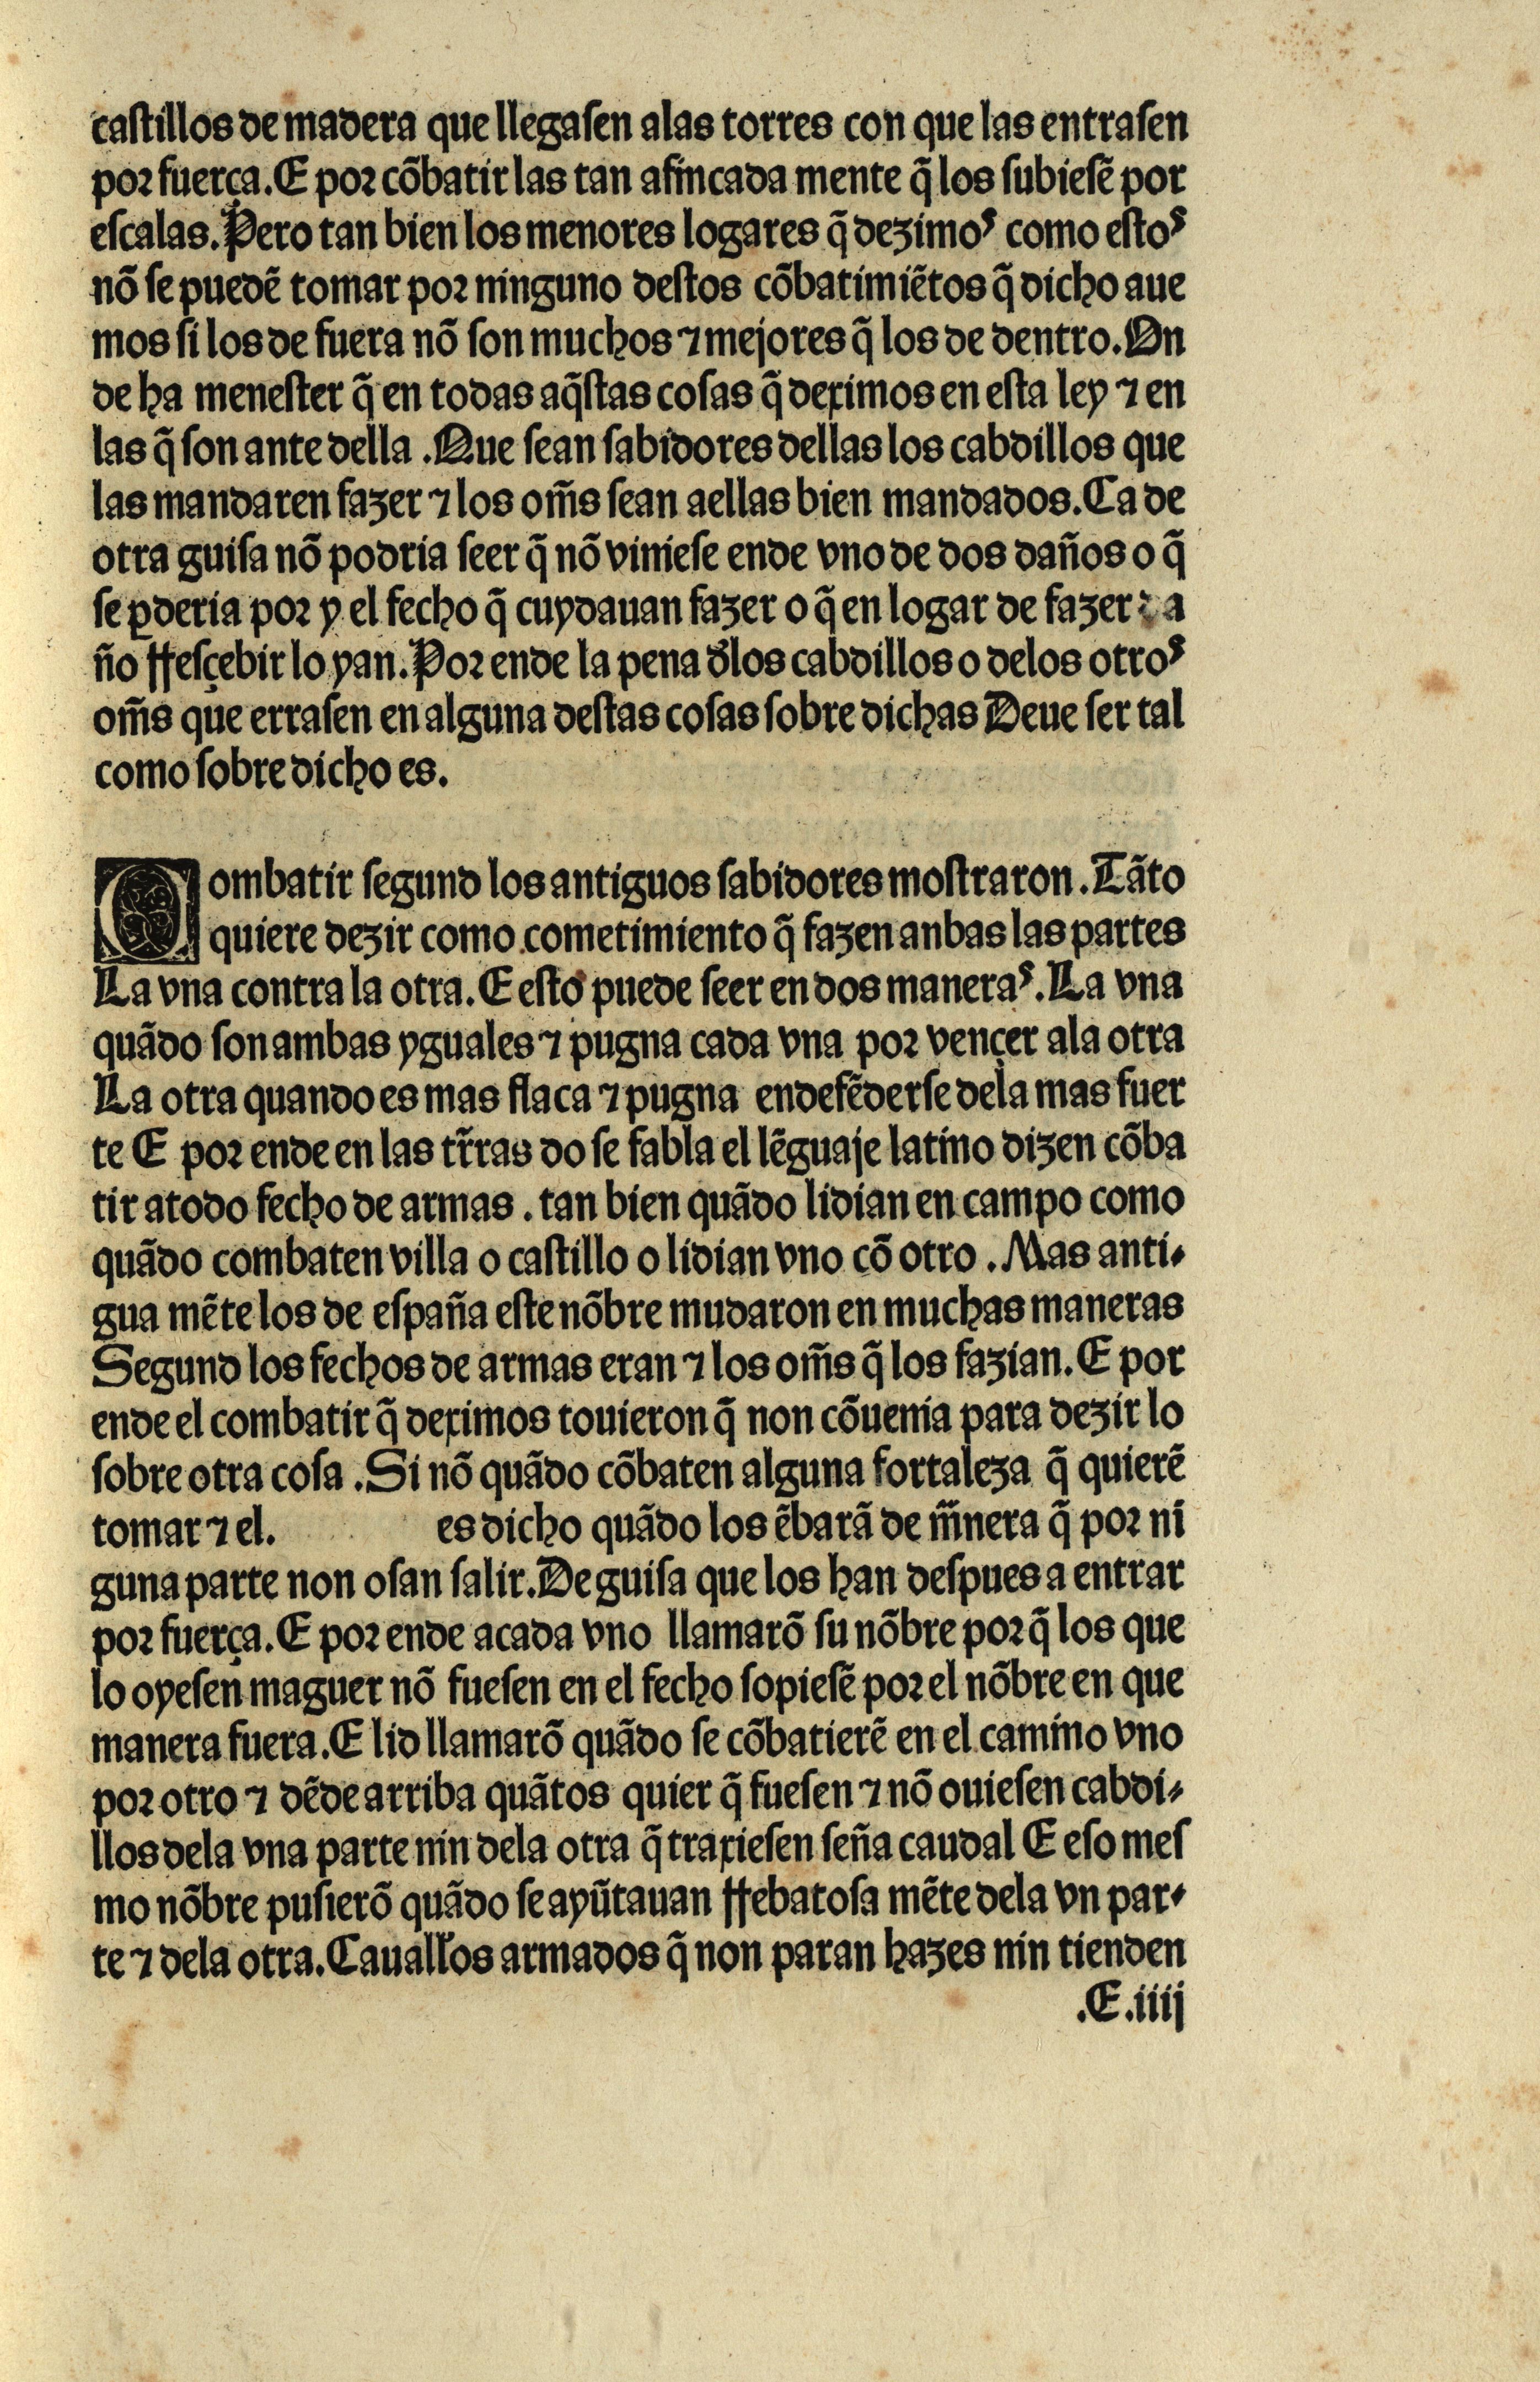 castillos de madera que llegasen alas torres con que las entrasen
por fuerça. E por cõbatir las tan afincada mente q̃ los subiesẽ por
escalas. Pero tan bien los menores logares q̃ dezimoˢ como estoˢ
nõ se puedẽ tomar por ninguno destos cõbatimiẽtos q̃ dicho aue
mos si los de fuera nõ son muchos ⁊ mejores q̃ los de dentro. On
de ha menester q̃ en todas aq̃stas cosas q̃ deximos en esta ley ⁊ en
las q̃ son ante della . Que sean sabidores dellas los cabdillos que
las mandaren fazer ⁊ los om̃s sean aellas bien mandados. Ca de
otra guisa nõ podria seer q̃ nõ viniese ende vno de dos daños o q̃
se ꝑderia por y el fecho q̃ cuydauan fazer o q̃ en logar de fazer da
ño ffesçebir lo yan. Por ende la pena đlos cabdillos o delos otroˢ
om̃s que errasen en alguna destas cosas sobre dichas Deue ser tal
como sobre dicho es.
Combatir segund los antiguos sabidores mostraron . Tãto
quiere dezir como cometimiento q̃ fazen anbas las partes
La vna contra la otra. E esto puede seer en dos maneraˢ. La vna
quãdo son ambas yguales ⁊ pugna cada vna por vençer ala otra
La otra quando es mas flaca ⁊ pugna endefẽderse dela mas fuer
te E por ende en las tr̃ras do se fabla el lẽguaje latino dizen cõba
tir atodo fecho de armas . tan bien quãdo lidian en campo como
quãdo combaten villa o castillo o lidian vno cõ otro . Mas anti-
gua mẽte los de españa este nõbre mudaron en muchas maneras
Segund los fechos de armas eran ⁊ los om̃s q̃ los fazian. E por
ende el combatir q̃ deximos touieron q̃ non cõuenia para dezir lo
sobre otra cosa . Si nõ quãdo cõbaten alguna fortaleza q̃ quierẽ
tomar ⁊ el. es dicho quãdo los ẽbarã de m̃nera q̃ por ni
guna parte non osan salir. De guisa que los han despues a entrar
por fuerça. E por ende acada vno llamarõ su nõbre por q̃ los que
lo oyesen maguer nõ fuesen en el fecho sopiesẽ por el nõbre en que
manera fuera. E lid llamarõ quãdo se cõbatierẽ en el camino vno
por otro ⁊ dẽde arriba quãtos quier q̃ fuesen ⁊ nõ ouiesen cabdi-
llos dela vna parte nin dela otra q̃ traxiesen seña caudal E eso mes
mo nõbre pusierõ quãdo se ayũtauan ffebatosa mẽte dela vn par-
te ⁊ dela otra. Cauall̃os armados q̃ non paran hazes nin tienden
.E.iiij